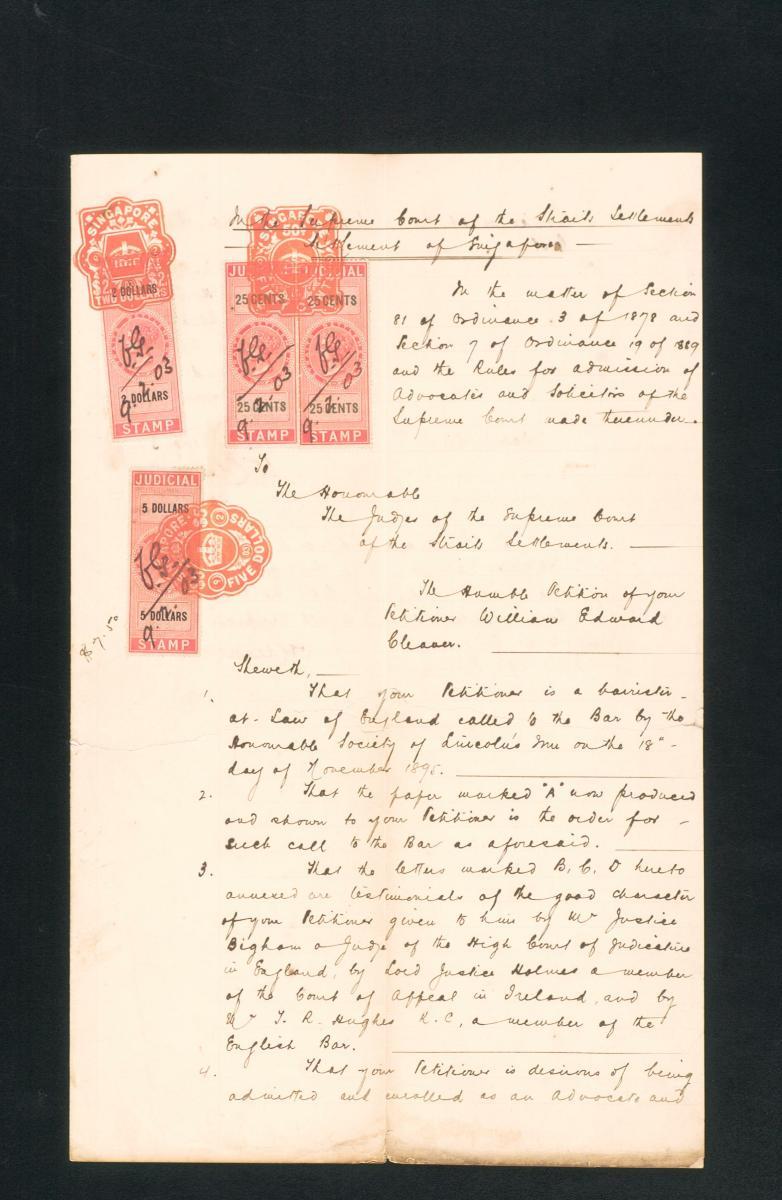 In the Supreme Court of the Straits Settlements
Settlement of Singapore
SINGAPORE
2 DOLLARS
TWO DOLLARS
2 DOLLARS
STAMP
SINGAPORE
50
JUDICIAL
25 CENTS
25 CENTS
STAMP
JUDICIAL
25 CENTS
25 CENTS
STAMP
In the matter of Section
81 of Ordinance 3 of 1878 and
Section 7 of Ordinance 19 of 1889
and the Rules for admission of
Advocates and Solicitors of the
Supreme Court made thereunder.
To
The Honourable
The Judges of the Supreme Court
of the Straits Settlements.
JUDICIAL
5 DOLLARS
5 DOLLARS
STAMP
FIVE DOLLARS
$7.50
The Humble Petition of your
Petitioner William Edward
Cleaver.
Sheweth,
1. That your Petitioner is a barrister-
at-Law of England called to the Bar by the
Honourable Society of Lincoln's Inn on the 18"
day of November 1895.
2. That the paper marked "A" now produced
and shown to your Petitioner is the order for
such call to the Bar as aforesaid.
3. That the letters marked B, C, D hereto
annexed are testimonials of the good character
of your Petitioner given to him by Mr Justice
Bigham a Judge of the High Court of Judicature
in England, by Lord Justice Holmes a member
of the Court of Appeal in Ireland, and by
Mr T. R. Hughes K.C, a member of the
English Bar.
4. That your Petitioner is desirous of being
admitted and enrolled as an Advocate and